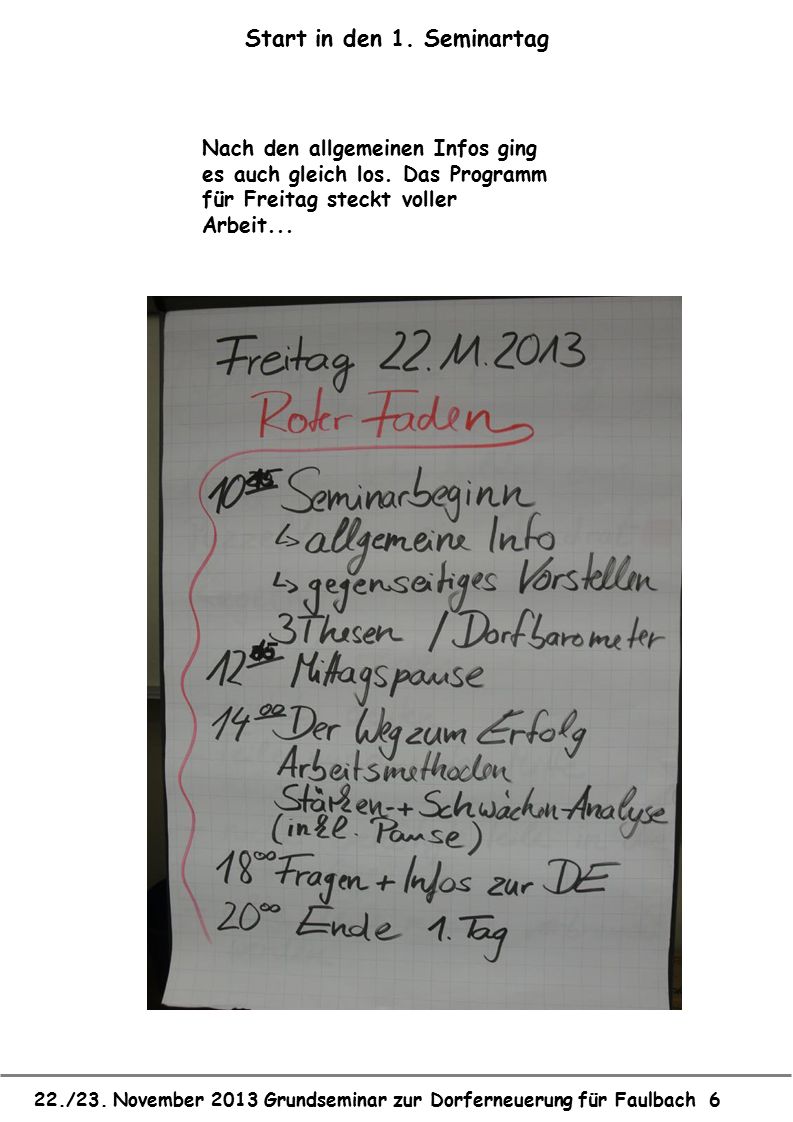 Start in den 1. Seminartag
Nach den allgemeinen Infos ging
es auch gleich los. Das Programm
für Freitag steckt voller
Arbeit...
Freitag 22.11.2013
Roter Faden
10 Seminarbeginn
↳ allgemeine Info
↳ gegenseitiges Vorstellen
3 Thesen / Dorfbarometer
12 Mittagspause
14 00 Der Weg zum Erfolg
Arbeitsmethoden
Stärken- + Schwächen-Analyse
(inkl. Pause)
18 00 Fragen + Infos zur DE
20 00 Ende 1. Tag
22./23. November 2013 Grundseminar zur Dorferneuerung für Faulbach 6